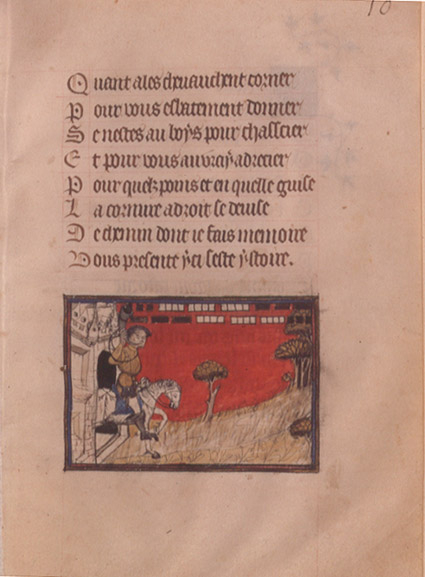 10
Quant ales cheuauchent corner
Pour vous esbatement donner
Se nestes au boys pour chassier
Et pour vous au vray adrecier
Pour quelx poins et en quelle guise
La cornure adroit se deuise
De chemin dont ie fais memoire
Vous presente yci ceste ystoire.